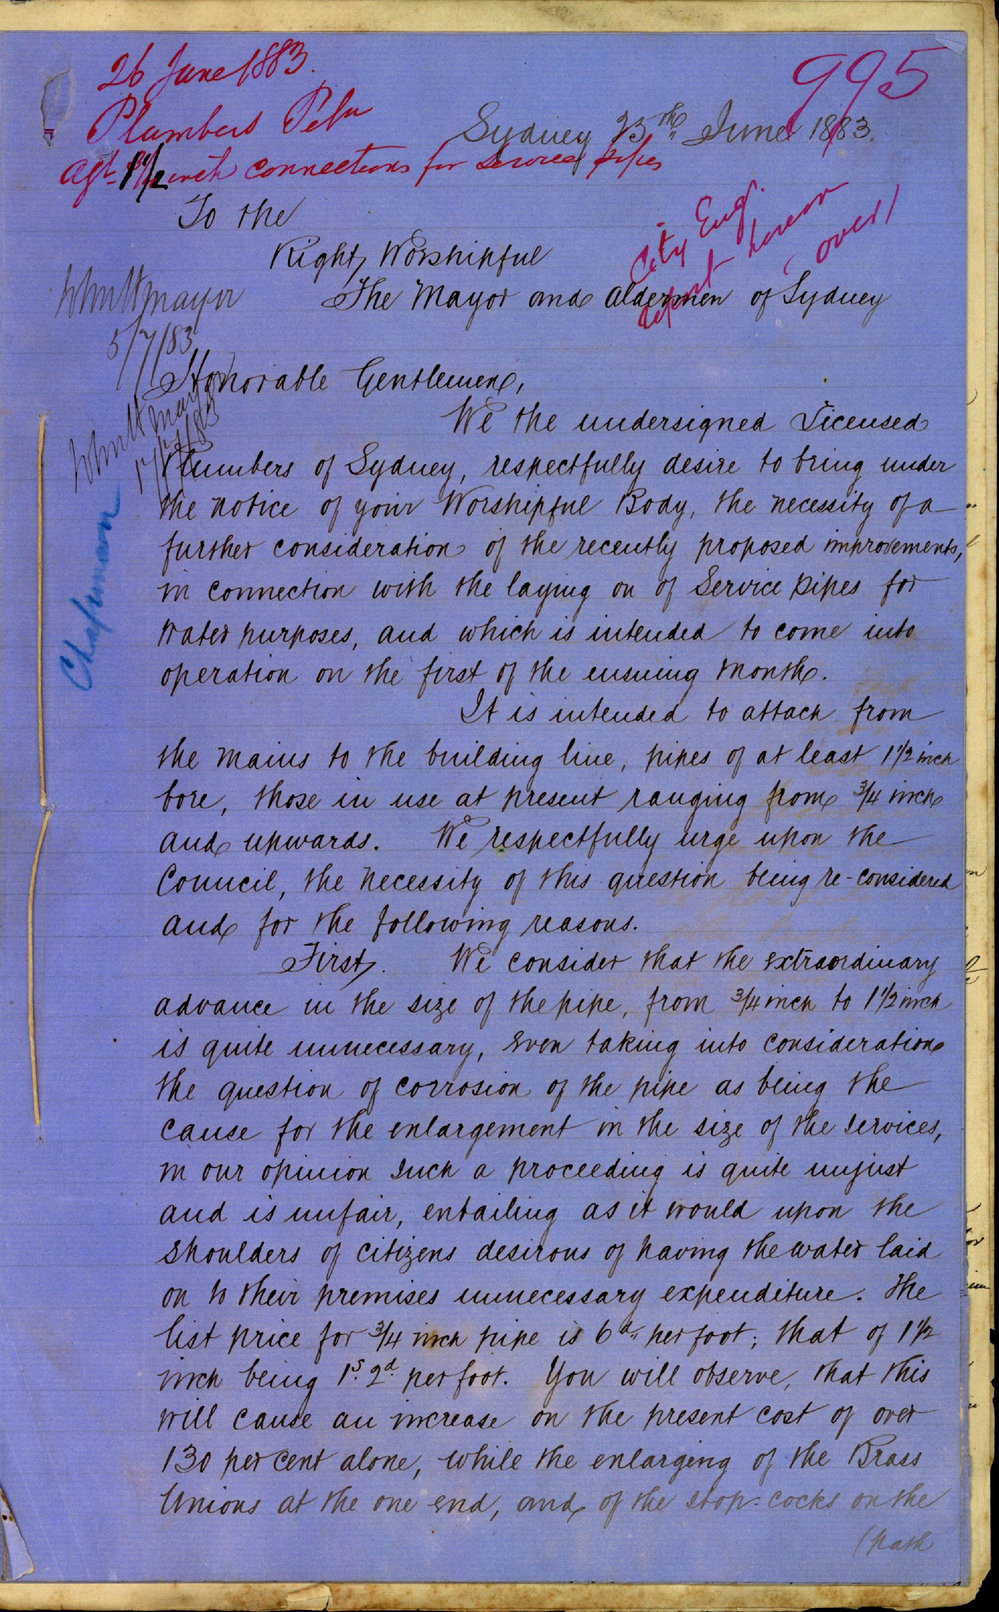 26 June 1883.
995
Plumbers Petn
Sydney 23th June 1883.
Agst 1 1/2 inch connections for service pipes
To the
Right Worshipful
The Mayor and Aldermen of Sydney
City Engr.
report hereon
over/
mayor
5/7/83
Honorable Gentlemen,
We the undersigned Licensed
Plumbers of Sydney, respectfully desire to bring under
the notice of your Worshipful Body, the necessity of a
further consideration of the recently proposed improvements,
in connection with the laying on of Service pipes for
Water purposes, and which is intended to come into
operation on the first of the ensuing Month.
Chapman
It is intended to attach from
the mains to the building line, pipes of at least 1 1/2 inch
bore, those in use at present ranging from 3/4 inch
and upwards. We respectfully urge upon the
Council, the necessity of this question being re-considered
and for the following reasons.
First. We consider that the extraordinary
advance in the size of the pipe, from 3/4 inch to 1 1/2 inch
is quite unnecessary, even taking into consideration
the question of corrosion of the pipe as being the
cause for the enlargement in the size of the services,
in our opinion such a proceeding is quite unjust
and is unfair, entailing as it would upon the
shoulders of citizens desirous of having the water laid
on to their premises unnecessary expenditure. The
list price for 3/4 inch pipe is 6d. per foot; that of 1 1/2
inch being 1s. 2d. per foot. You will observe, that this
will cause an increase on the present cost of over
130 per cent alone, while the enlarging of the Brass
Unions at the one end, and of the stop-cocks on the
(path